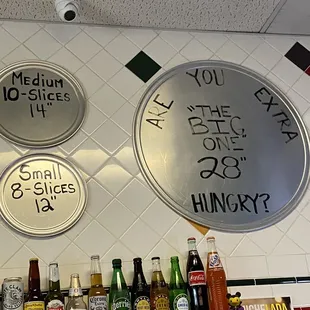 Medium
10-Slices
14"
Small
8-Slices
12"
ARE YOU EXTRA
"THE
BIG
ONE"
28"
HUNGRY?
Coca-Cola